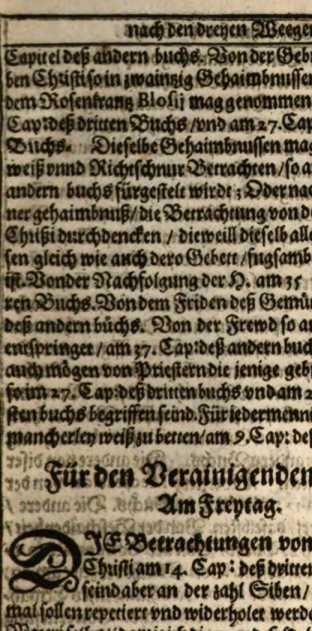 nach den dreyen Weegen
Capitel deß andern buchs. Von der Geb
ben Christi so in zwaintzig Gehaimbnussen
dem Rosenkrantz Blosij mag genommen
Cap: deß dritten Buchs / vnd am 27. Cap
Buchs. Dieselbe Gehaimbnussen mag
weiß vnnd Richtschnur Betrachten / so a
andern buchs fürgestelt wirdt; Oder nac
ner gehaimbnuß / die Betrachtung von d
Christi durchdencken / dieweill dieselb alle
sen gleich wie auch dero Gebett / fugsamb
ist. Von der Nachfolgung der H. am 35
ren Buchs. Von dem Friden deß Gemü
deß andern büchs. Von der Frewd so au
entspringet / am 37. Cap: deß andern buch
auch mögen von Priestern die jenige geb
so im 27. Cap: deß dritten buchs vnd am 2
sten buchs begriffen seind. Für iedermenni
mancherley weiß zu betten / am 9. Cap: deß
Für den Verainigenden
Am Freytag.
DIE Betrachtungen von
Christi am 14. Cap: deß dritten
seind aber an der zahl Siben /
mal sollen repetiert vnd widerholet werde